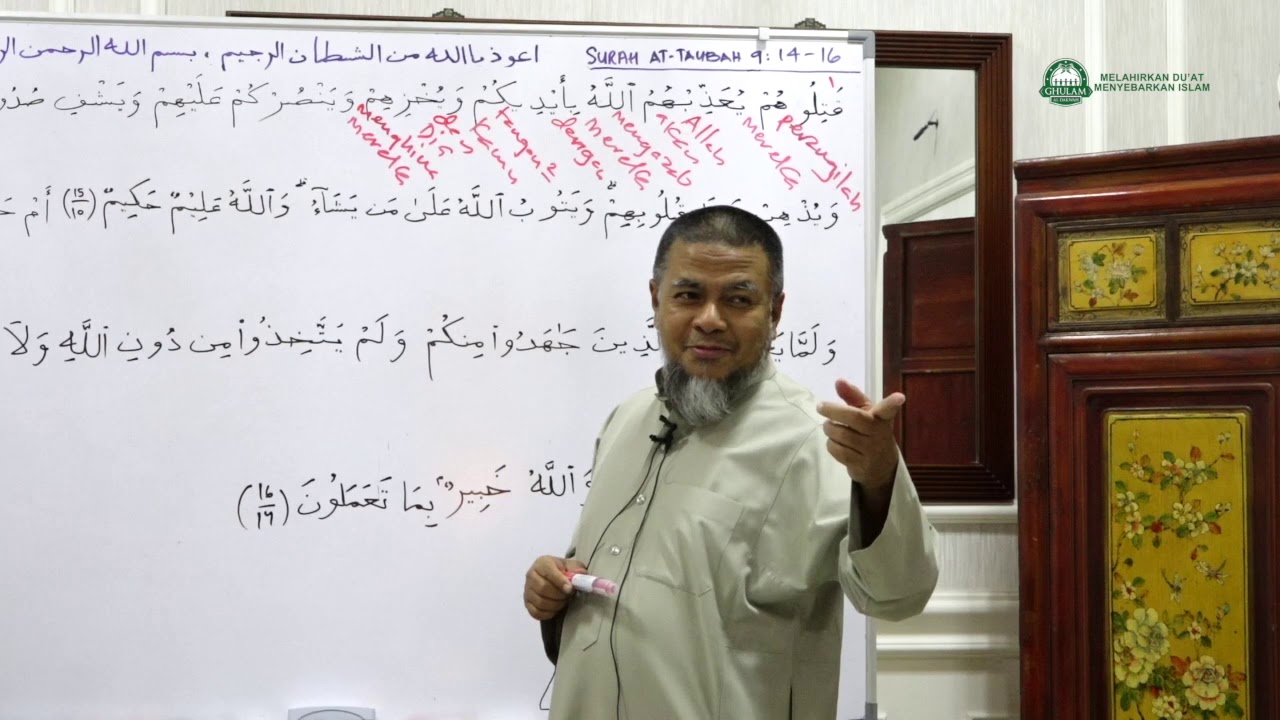 اعوذ باالله من الشطأن الرجيم ، بسم الله الرحمن
SURAH AT-TAUBAH 9: 14-16
قَٰتِلُوهُمْ يُعَذِّبْهُمُ ٱللَّهُ بِأَيْدِيكُمْ وَيُخْزِهِمْ وَيَنْصُرْكُمْ عَلَيْهِمْ وَيَشْفِ
perangilah mereka Allah akan mengazab mereka dengan tangan2 kamu dan Dia menghina mereka
وَيُذْهِبْ قُلُوبِهِمْ ۗ وَيَتُوبُ ٱللَّهُ عَلَىٰ مَن يَشَآءُ ۗ وَٱللَّهُ عَلِيمٌ حَكِيمٌ (15/١٥) أَمْ
وَلَمَّا جَٰهَدُوا۟ مِنكُمْ وَلَمْ يَتَّخِذُوا۟ مِن دُونِ ٱللَّهِ وَلَا
ٱللَّهُ خَبِيرٌۢ بِمَا تَعْمَلُونَ (16/١٦)
GHULAM
AL DAKWAH
MELAHIRKAN DU'AT
MENYEBARKAN ISLAM